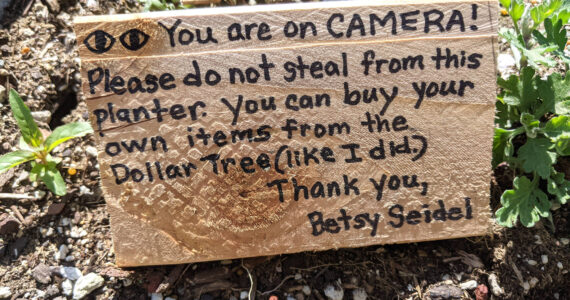 You are on CAMERA!
Please do not steal from this
planter. You can buy your
own items from the
Dollar Tree (like I did.)
Thank you,
Betsy Seidel